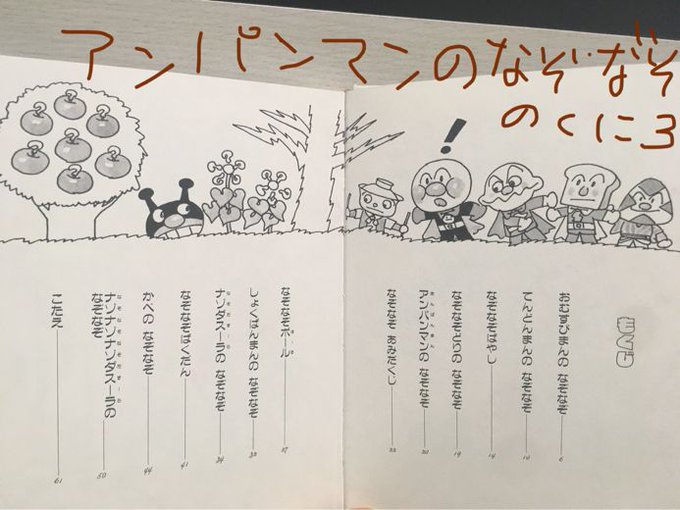 アンパンマンのなぞなぞ
のくに3
!
もくじ
おむすびまんの なぞなぞ 6
てんどんまんの なぞなぞ 10
なぞなぞばやし 14
なぞなぞ
アンパンマンの なぞなぞ 20
なぞなぞ あみだくじ
なぞなぞボール 27
しょくぱんまんの なぞなぞ 32
ナゾダスーラの なぞなぞ
なぞなぞばくだん 41
かべの なぞなぞ 44
ナゾナゾナゾダスーラの
なぞなぞ 50
こたえ 61